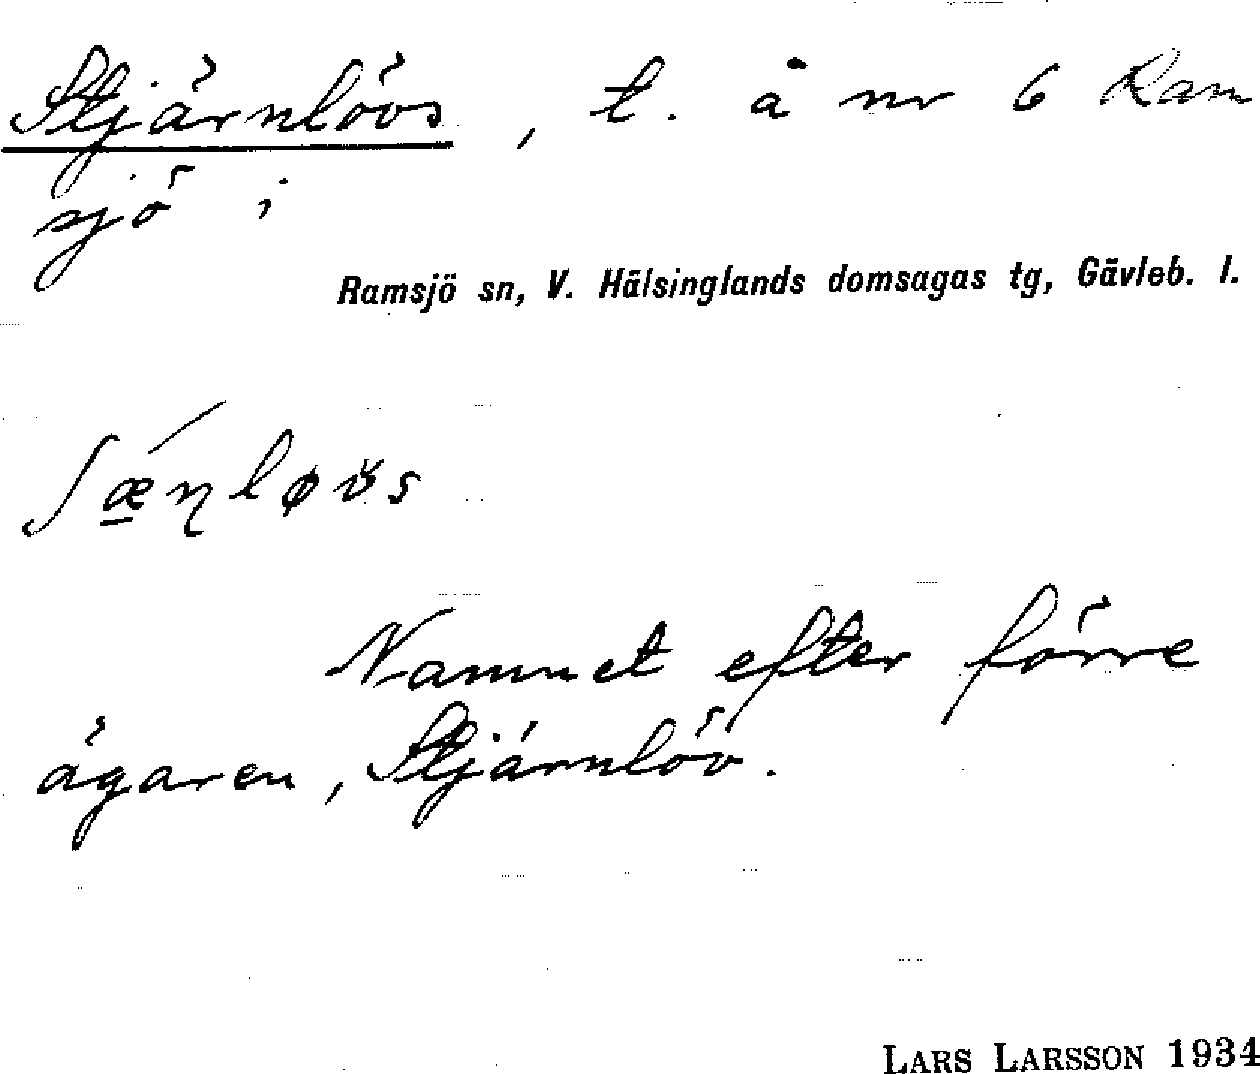 Stjärnlövs, t. å nr 6 Ram
sjö i
Ramsjö sn, V. Hälsinglands domsagas tg, Gävleb. l.
Namnet efter förre
ägaren, Stjärnlöv.
LARS LARSSON 1934